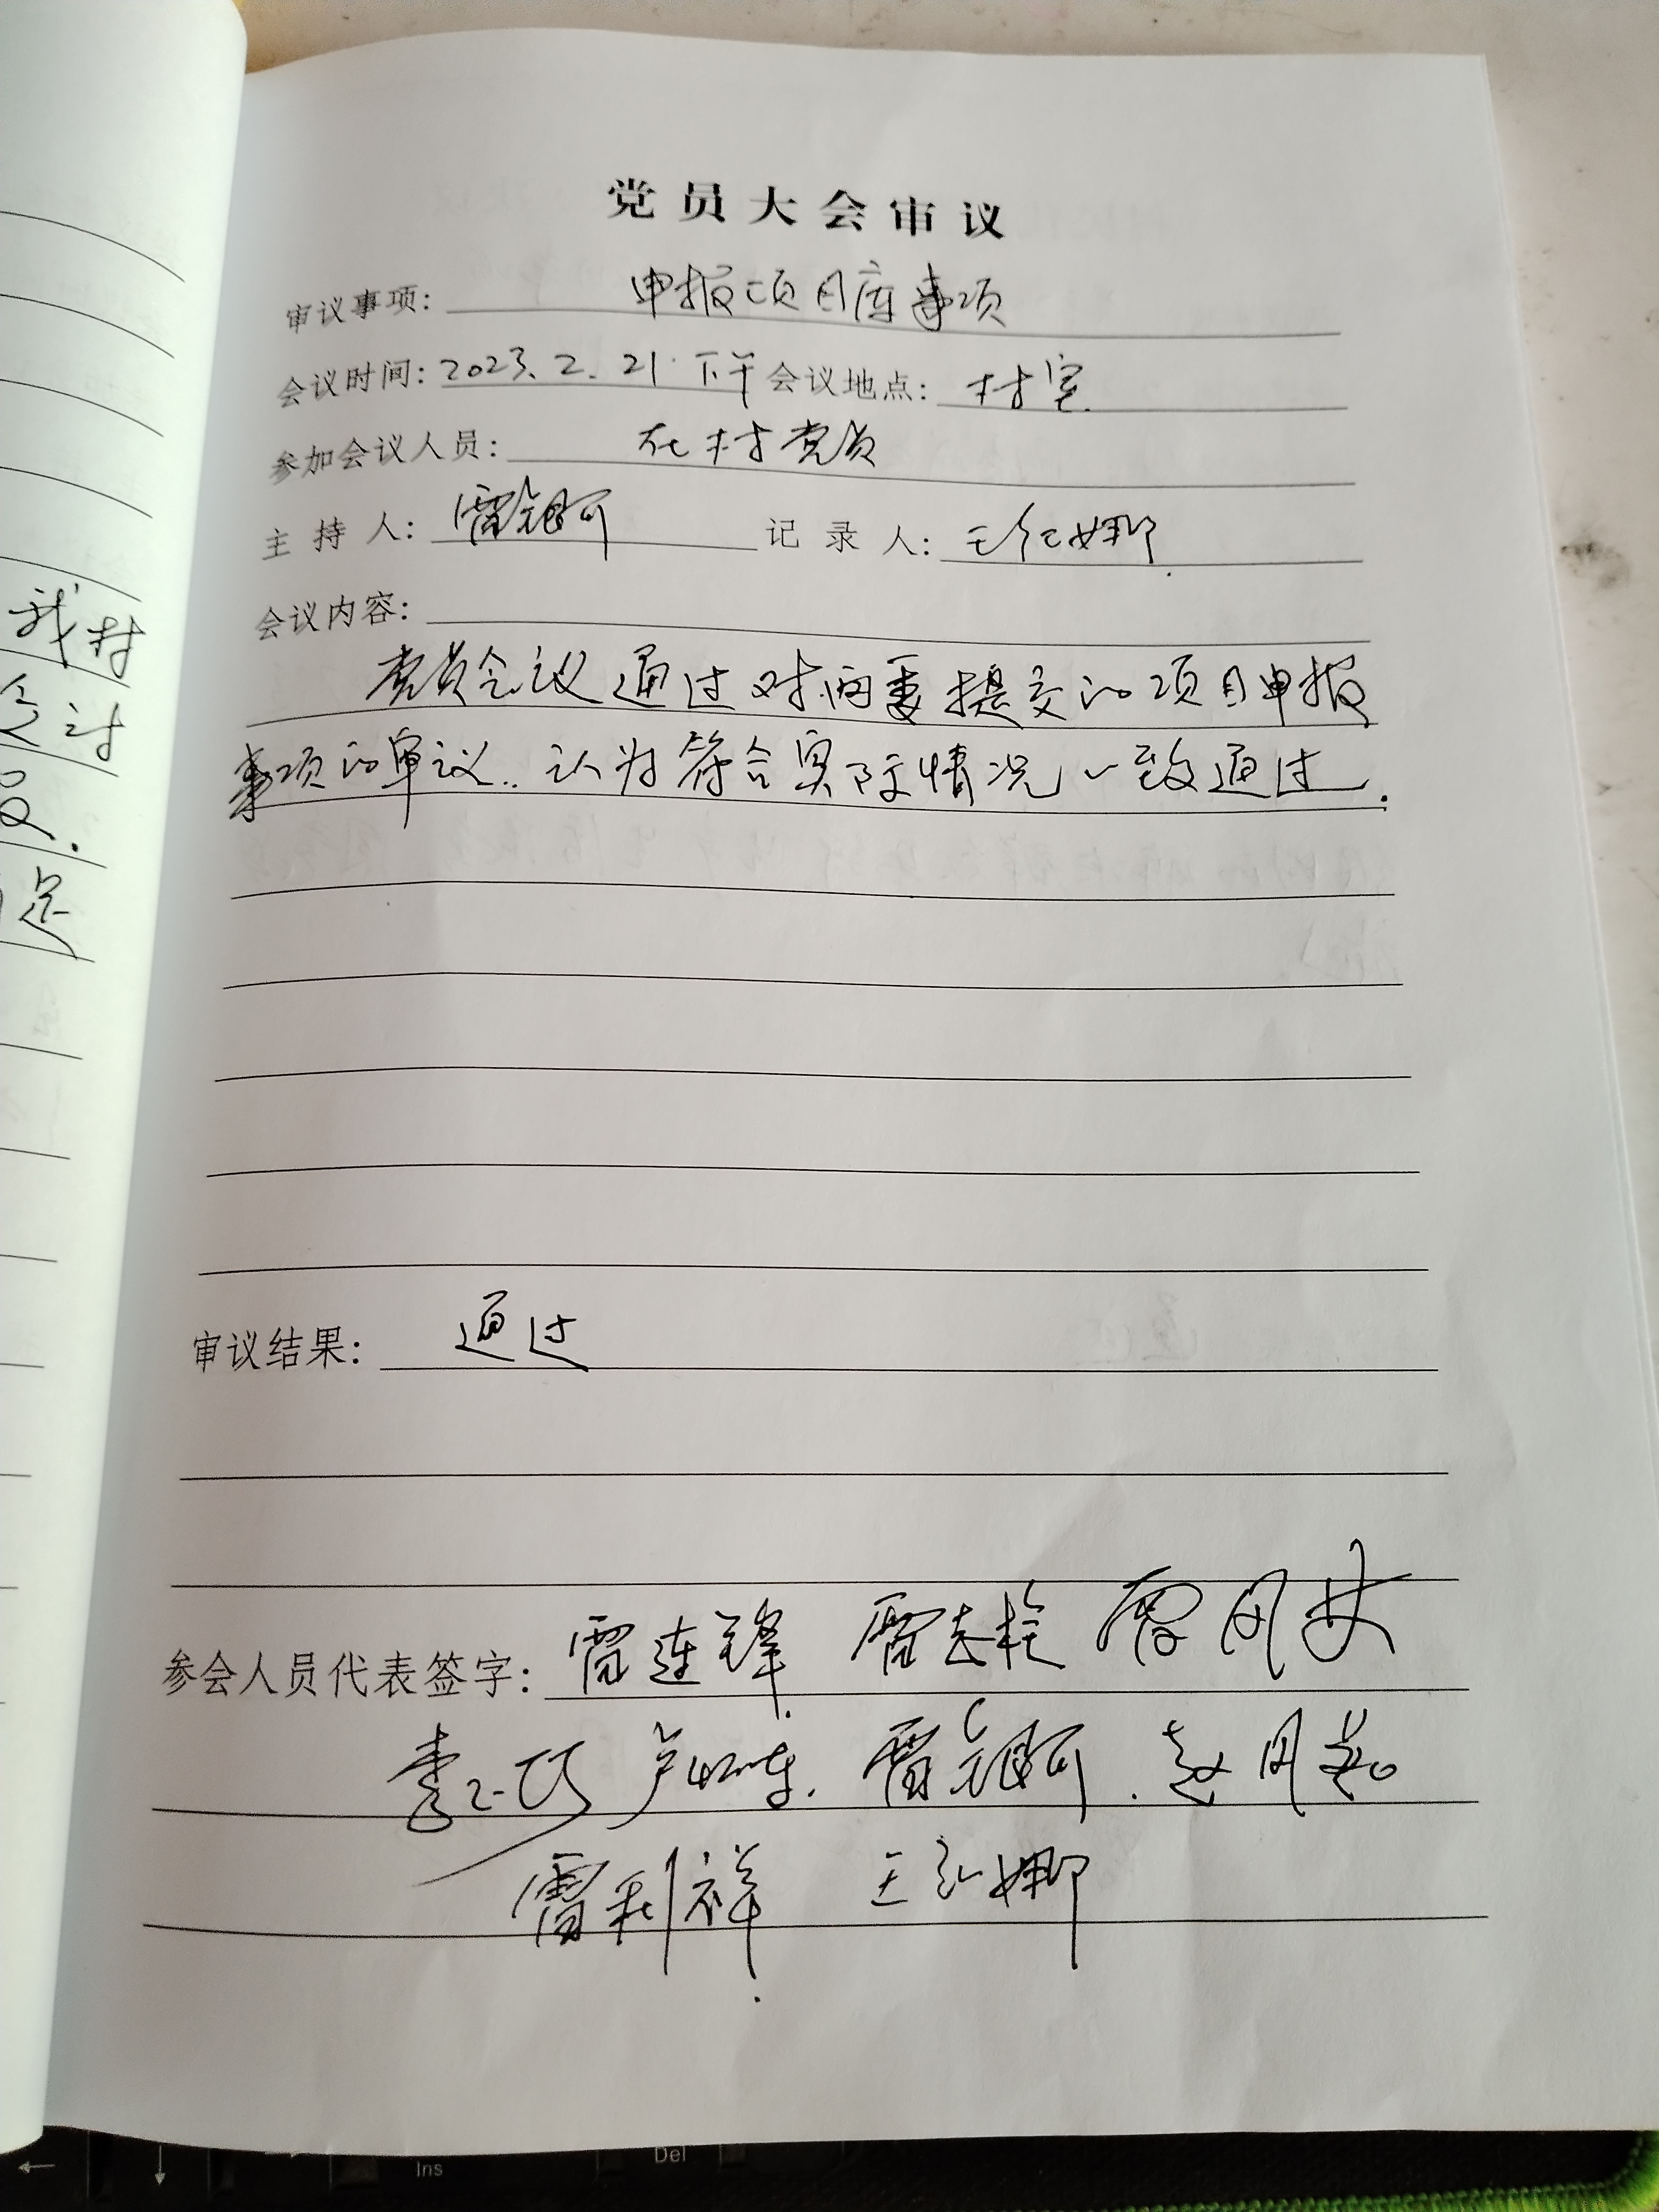 党员大会审议
审议事项: 申报项目库事项
会议时间: 2023.2.21.下午 会议地点: 村室
参加会议人员: 在村党员
主持人: 雷 记录人: 王红娜
会议内容:
党员会议通过对两委提交的项目申报
事项的审议.. 认为符合实际情况一致通过.
审议结果: 通过
参会人员代表签字: 雷连锋. 雷志栓
雷利祥 王红娜
我村
足
Ins
Del